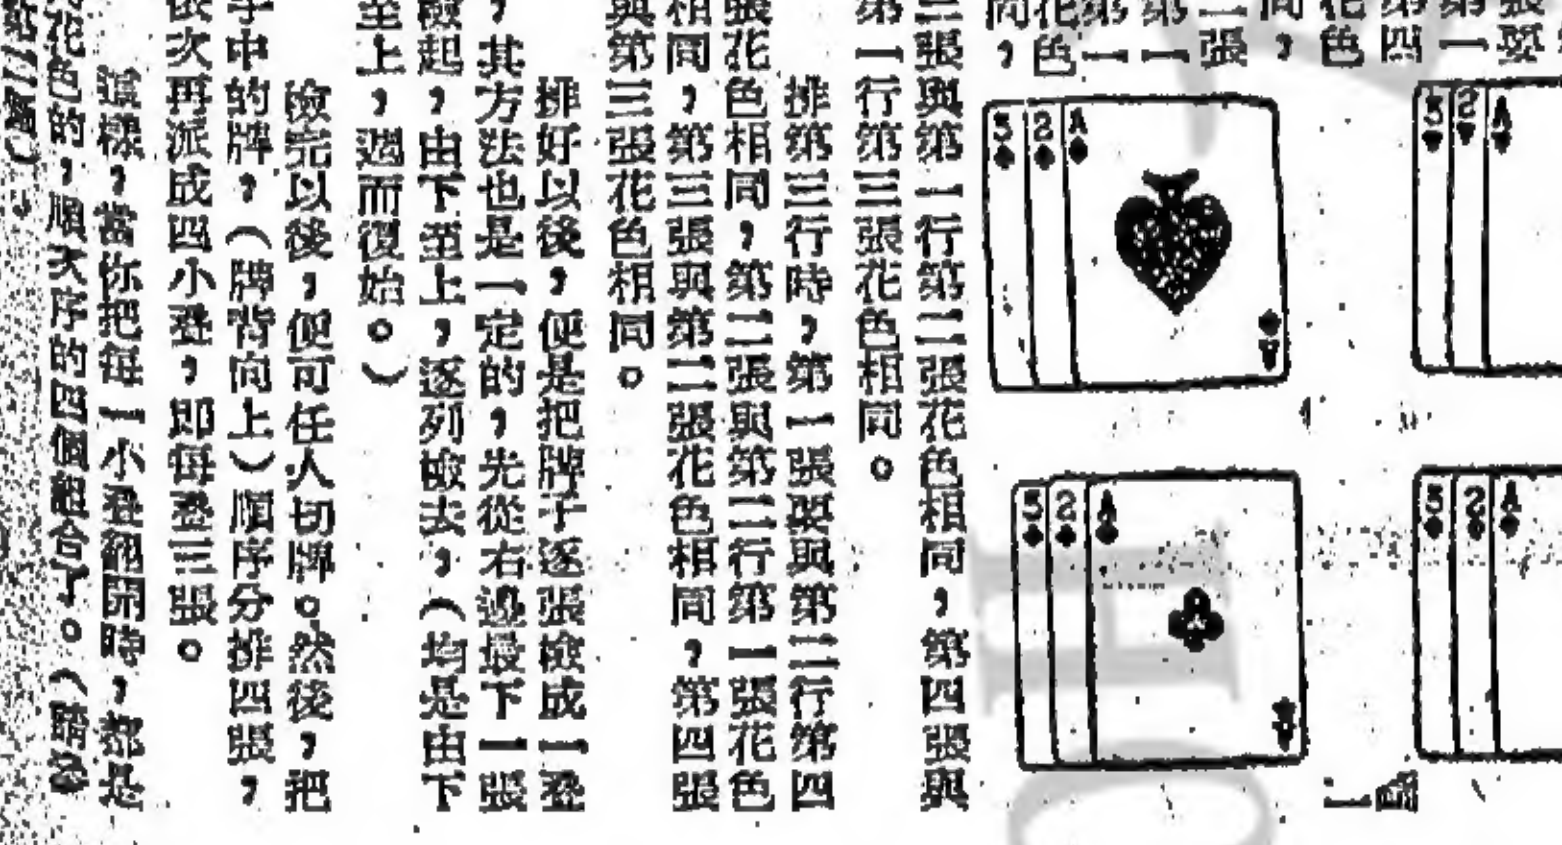 張與
第一
第四
花色
同，
二張
第一
第一
花色
同，
三張與第一行第二張花色相同，第四張與
第一行第三張花色相同。
排第三行時，第一張要與第二行第四
張花色相同，第二張與第二行第一張花色
相同，第三張與第二張花色相同，第四張
與第三張花色相同。
排好以後，便是把牌子逐張檢成一疊
，其方法也是一定的，先從右邊最下一張
檢起，由下至上，逐列檢去，（均是由下
至上，週而復始。）
檢完以後，便可任人切牌。然後，把
手中的牌，（牌背向上）順序分排四張，
依次再派成四小疊，即每疊三張。
這樣，當你把每一小疊翻開時，都是
花色的，順次序的四個組合了。
5 2 A
A
5 2 A
5 2 A
5 2 A
圖一